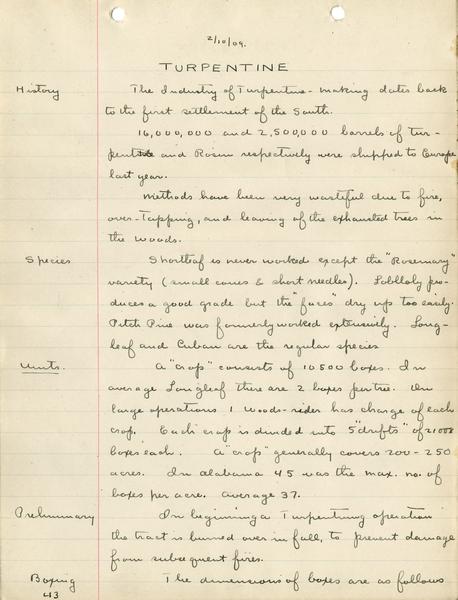 2/10/09.
TURPENTINE
History The Industry of Turpentine-making dates back
to the first settlement of the South.
16,000,000 and 2,500,000 barrels of tur-
pentine and Rosin respectively were shipped to Europe
last year.
Methods have been very wasteful due to fire,
over-Tapping, and leaving of the exhausted trees in
the woods.
Species Shortleaf is never worked except the "Rosemary"
variety (small cones & short needles). Loblloly pro-
duces a good grade but the "faces" dry up too easily.
Pitch Pine was formerly worked extensively. Long-
leaf and Cuban are the regular species
Units. A "crop" consists of 10500 boxes. In
average Longleaf there are 2 boxes per tree. On
large operations 1 woods-rider has charge of each
crop. Each crop is divided into 5 "drifts" of
boxes each. A "crop" generally covers 200-250
acres. In Alabama 45 was the max. no. of
boxes per acre. Average 37.
Preliminary In beginning a Turpentining operation
the tract is burned over in fall, to prevent damage
from subsequent fires.
Boxing The dimensions of boxes are as follows
43